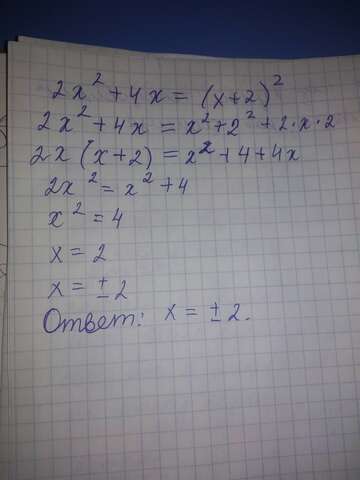 2x² + 4x = (x+2)²
2x² + 4x = x² + 2² + 2·x·2
2x (x+2) = x² + 4 + 4x
2x² = x² + 4
x² = 4
x = 2
x = ± 2
Ответ: x = ± 2.